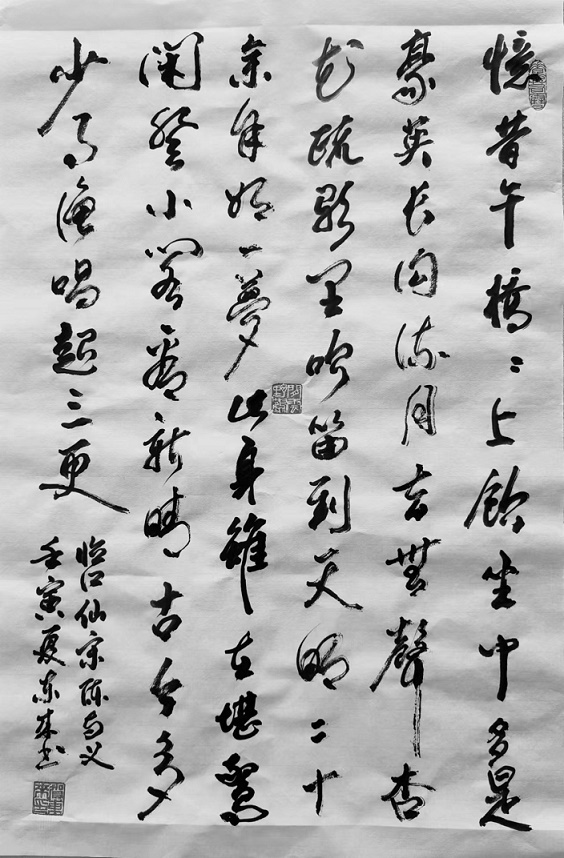 憶昔午橋〻上飲坐中多是
豪英長溝流月去無聲杏
花疏影里吹笛到天明二十
余年如一夢此身雖在堪驚
閑登小閣看新晴古今多
少事漁唱起三更
临江仙宋陈与义
壬寅夏东书